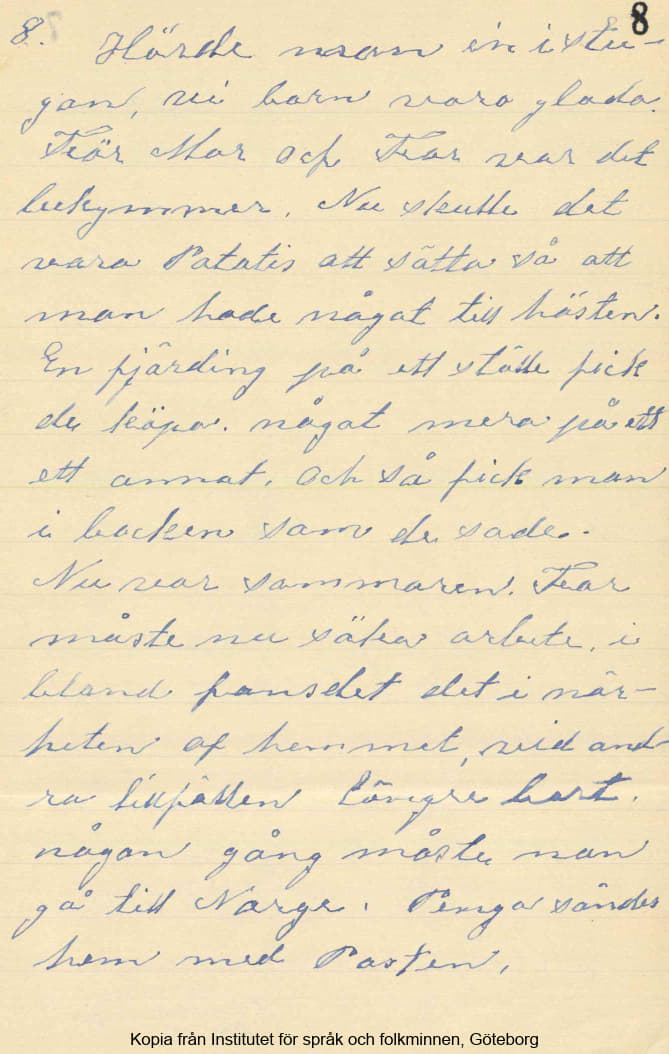 8. 8
Hörde man in i stu-
gan, vi barn voro glada.
För Mor och Far var det
bekymmer. Nu skulle det
vara Potatis att sätta så att
man hade något till hösten.
En fjärding på ett ställe fick
de köpa. något mera på ett
ett annat. och så fick man
i backen som de sade.
Nu var sommaren. Far
måste nu söka arbete, i
bland fansdet det i när-
heten af hemmet, vid and-
ra tillfällen längre bort.
någon gång måste man
gå till Norge. Penga sändes
hem med Posten,
Kopia från Institutet för språk och folkminnen, Göteborg